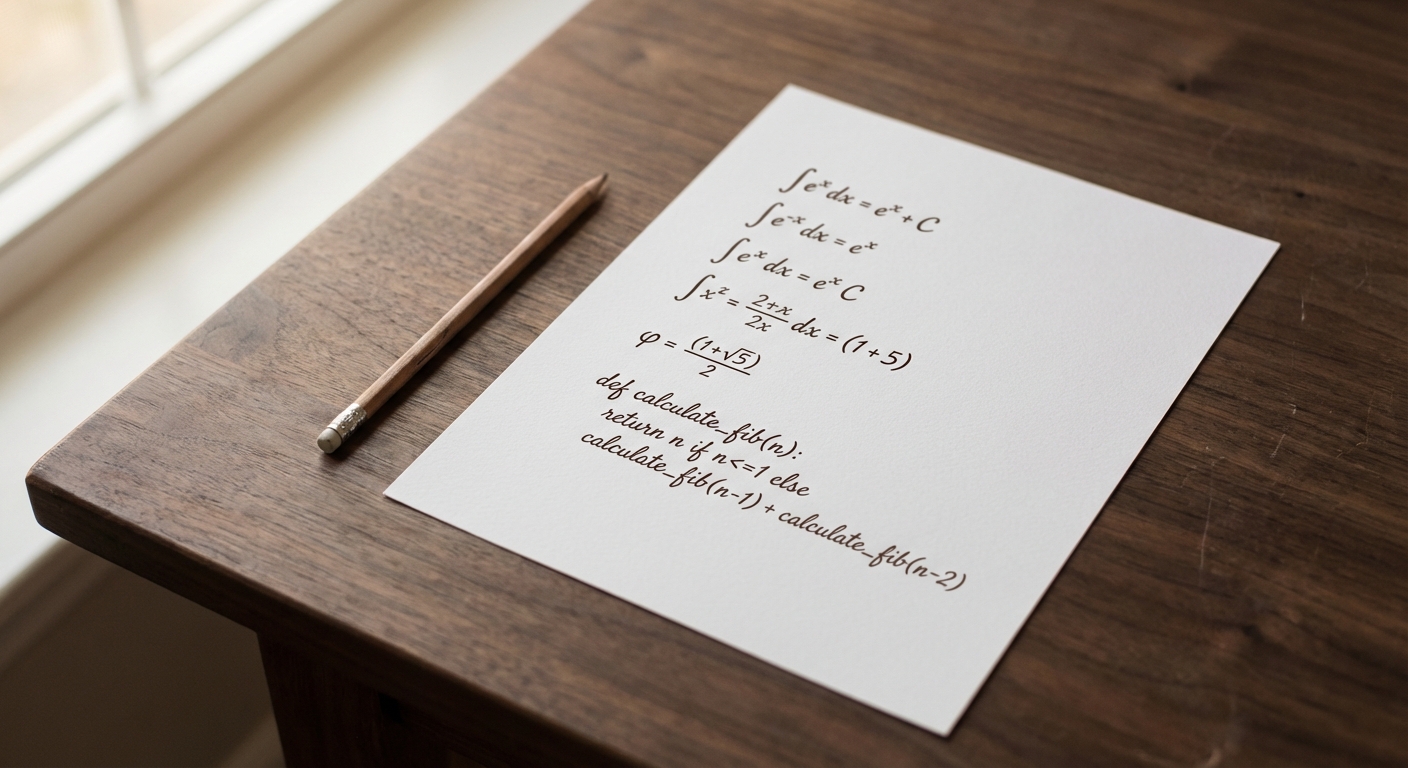 ∫e^x dx = e^x + C
∫e^-x dx = e^x
∫e^x dx = e^x C
∫x^2 = (2+x)/(2x) dx = (1+5)
φ = (1+√5)/2
def calculate_fib(n):
return n if n<=1 else
calculate_fib(n-1) + calculate_fib(n-2)